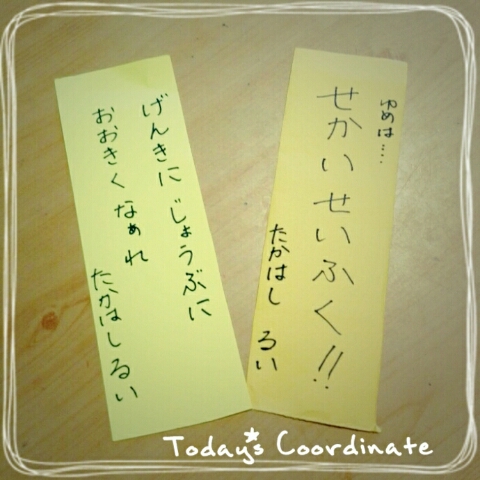 ゆめは…
せかいせいふく!!
たかはし るい
げんきに じょうぶに
おおきく なぁれ
たかはし るい
Today's Coordinate